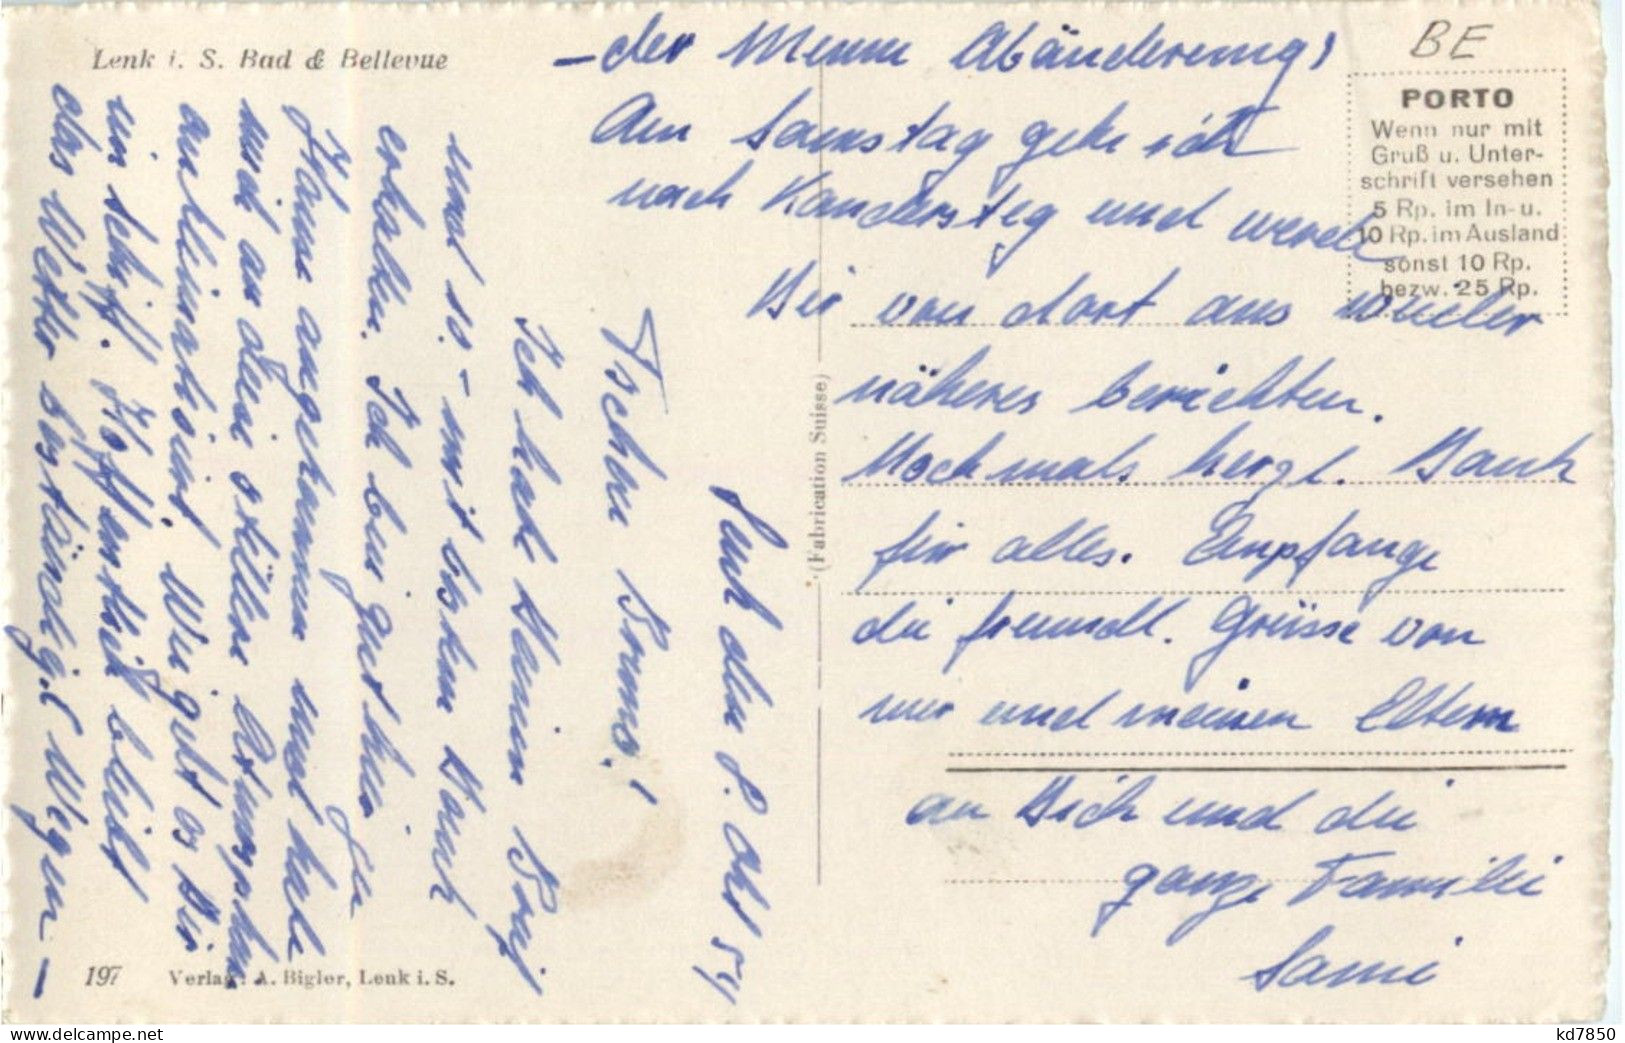 Lenk i. S. Bad & Bellevue
BE
PORTO
Wenn nur mit
Gruß u. Unter-
schrift versehen
5 Rp. im In- u.
10 Rp. im Ausland
sonst 10 Rp.
bezw. 25 Rp.
(Fabrication Suisse)
den 8. Okt 54
Tschau Bruno!
Ich habe Deinen Brief
und 10.- mit bestem Dank
erhalten. Ich bin gut hier
Hause angekommen und habe
mich an diese stille Atmosphäre
Wie geht es Dir
im Schiff. Hoffentlich bleibt
das Wetter beständig! Wegen
- der Menu Abänderung,
Am Samstag gehe ich
nach Kandersteg und werde
Dir von dort aus wieder
näheres berichten.
Nochmals herzl. Dank
für alles. Empfange
die freundl. Grüsse von
mir und meinen Eltern
an Dich und die
ganze Familie
Sami
197 Verlag: A. Bigler, Lenk i. S.
kd7850